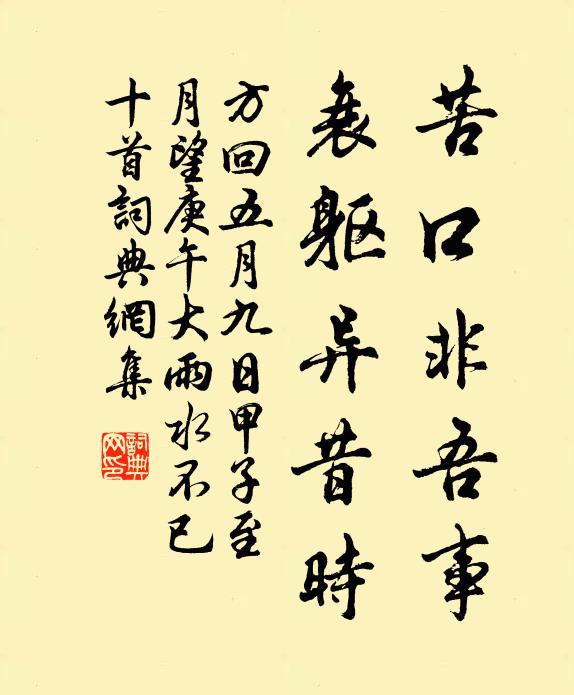 苦口非吾事
衰躯异昔時
方回五月九日甲子至
月望庚午大雨水不已
十首詞典網集
詞典网印